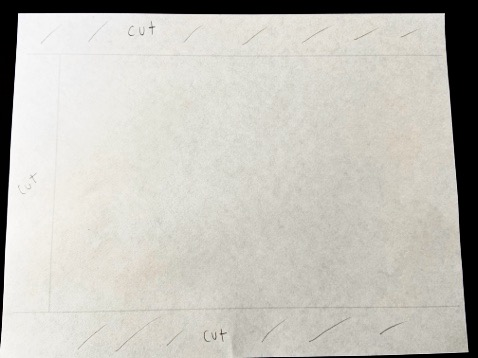 cut
cut
cut